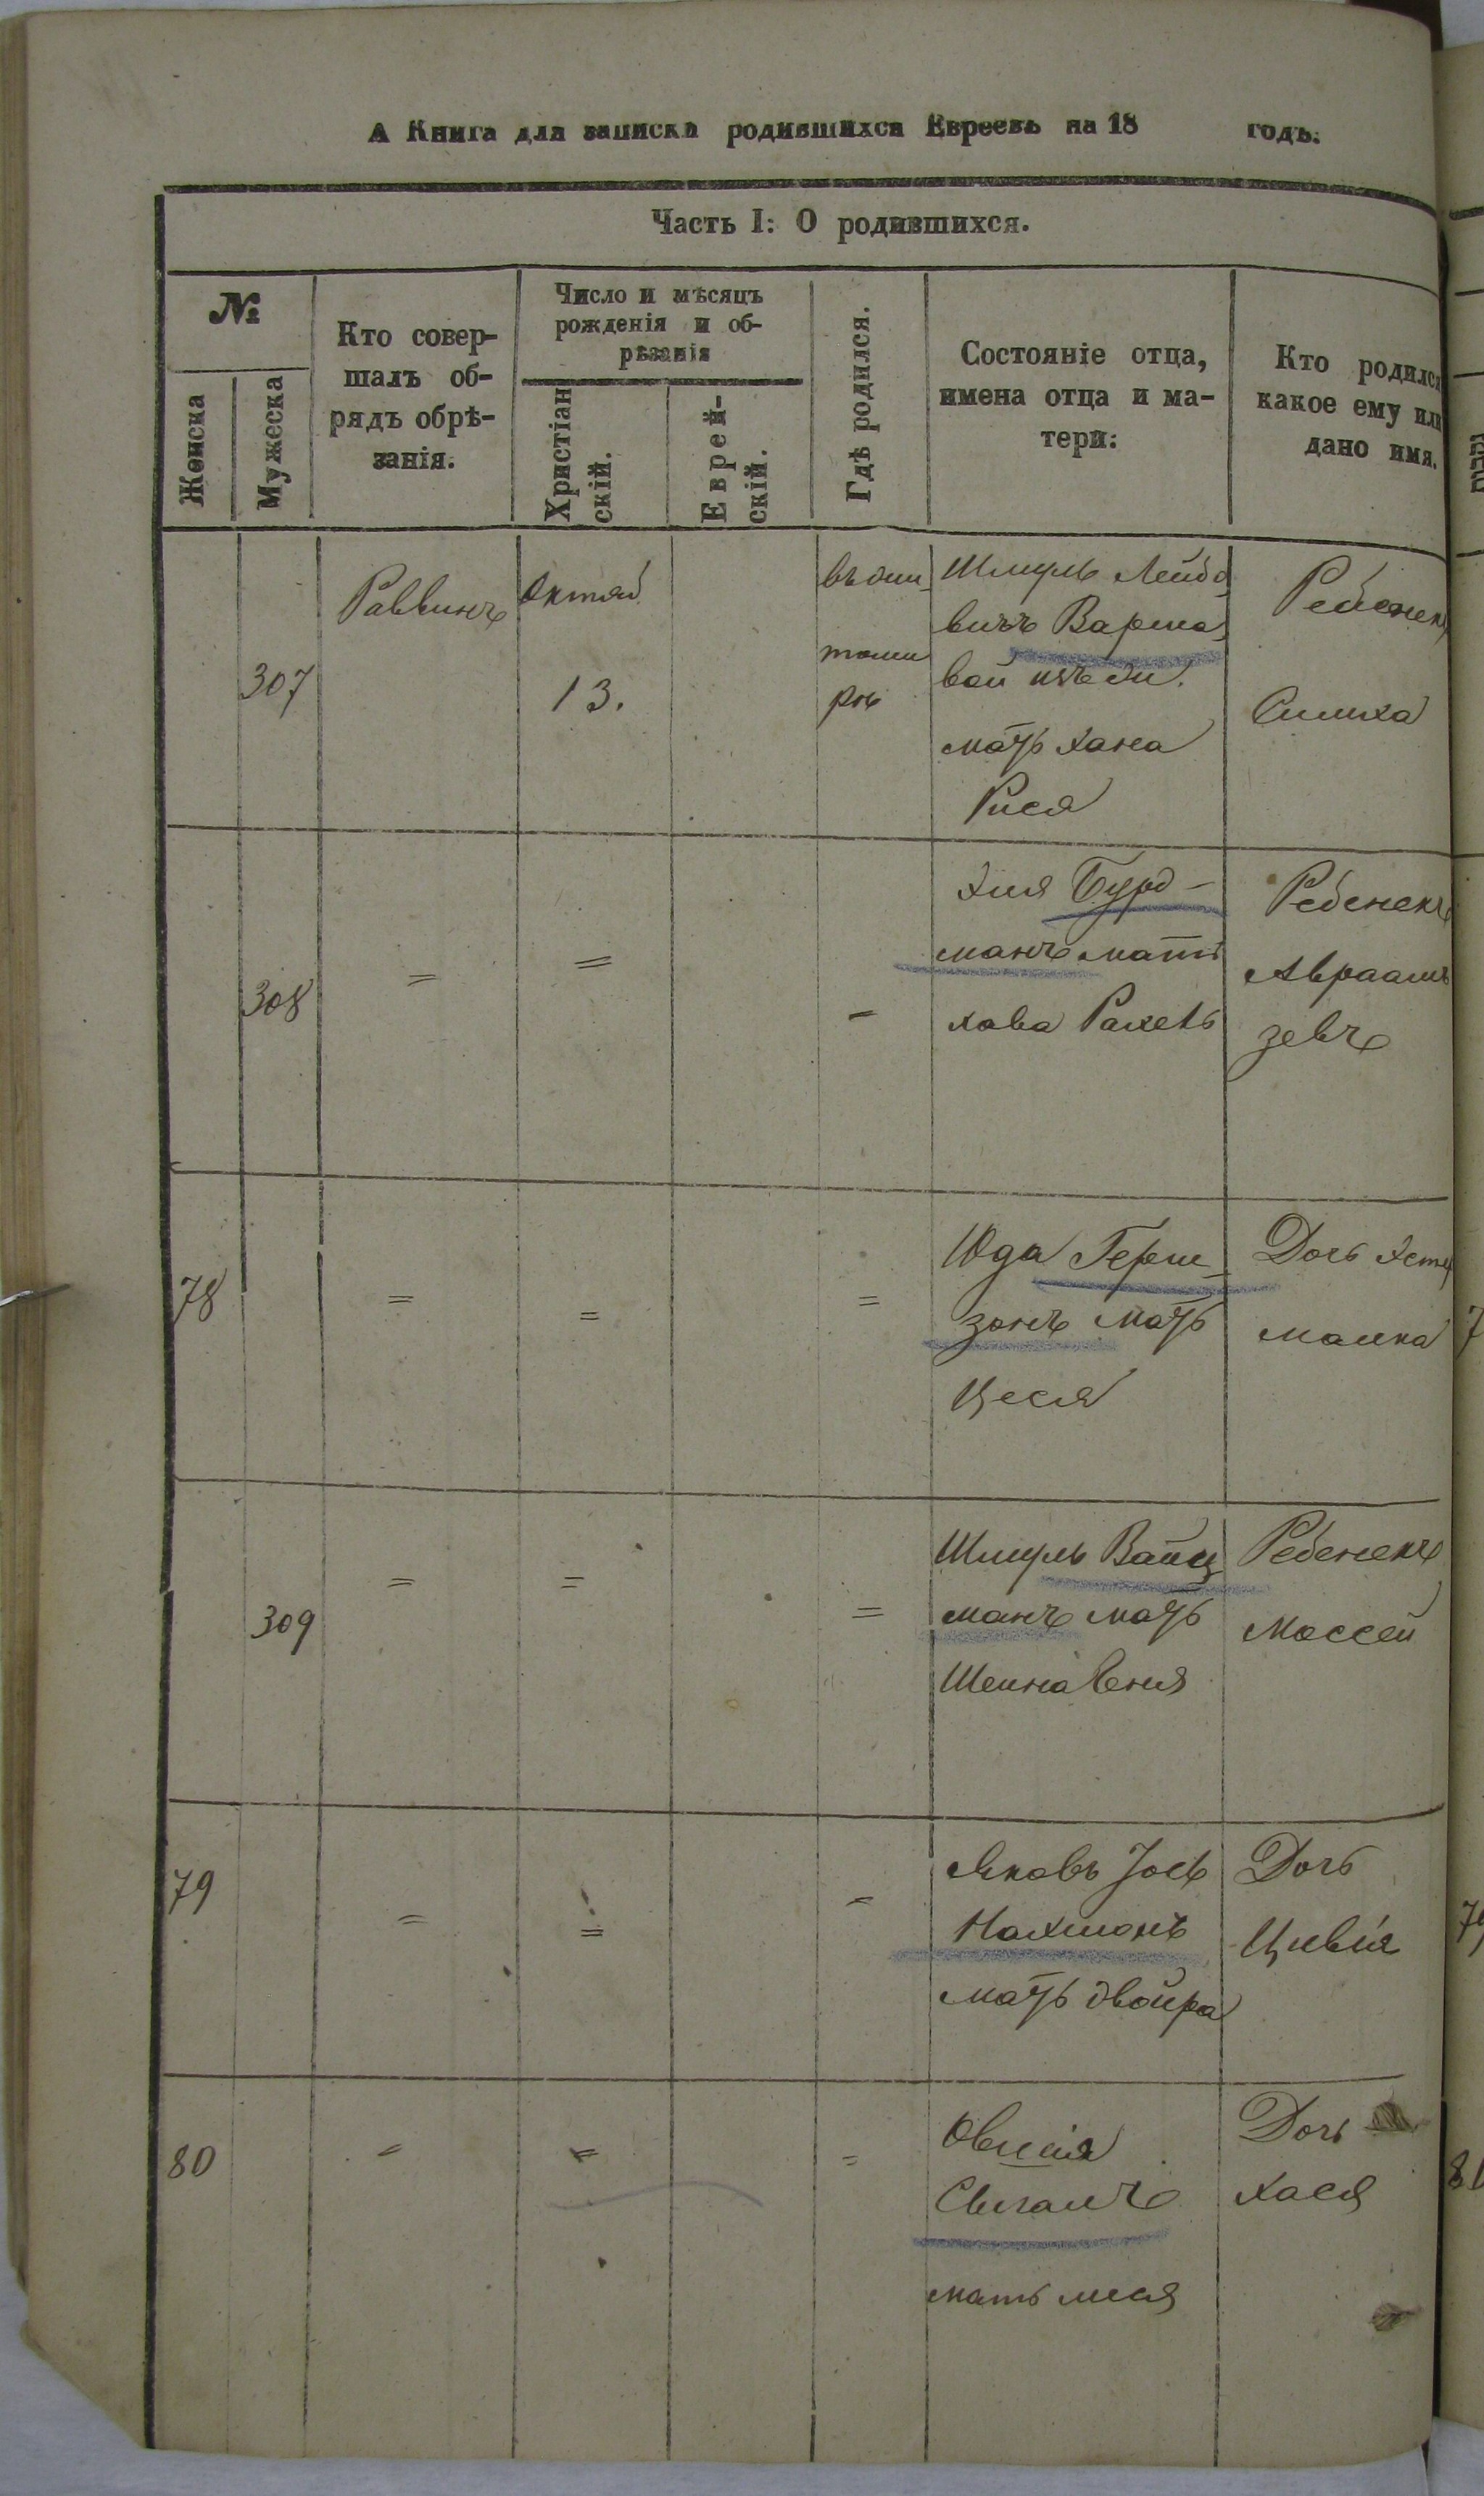 А Книга для записки родившихся Евреевъ на 18 годъ.
Часть I: О родившихся.
№
Женска
Мужеска
Кто совер-
шалъ об-
рядъ обрѣ-
занія.
Число и мѣсяцъ
рожденія и об-
рѣзанія
Христіан
скій.
Еврей-
скій.
Гдѣ родился.
Состояніе отца,
имена отца и ма-
тери.
Кто родился
какое ему или
дано имя.
307
Раввинъ
Октяб
13.
въ жи-
томи
рѣ
Шмуль Лейбо
вичъ Варша-
вой изъ жи.
мать Хана
Рися
Ребенекъ
Симха
308
=
=
-
Хия Бурд-
манъ мать
Хава Рахель
Ребенекъ
Авраамъ
Зевъ
78
=
=
=
Юда Герш-
зонъ мать
Цеся
Дочь Эстер
малка
309
=
=
=
Шмуль Вайц
манъ мать
Шейна Сеня
Ребенекъ
Моссей
79
=
=
-
Яковъ Іось
Нахманъ
мать двойра
Дочь
Цивія
80
=
=
=
Овшія
мать
Дочь
Хася